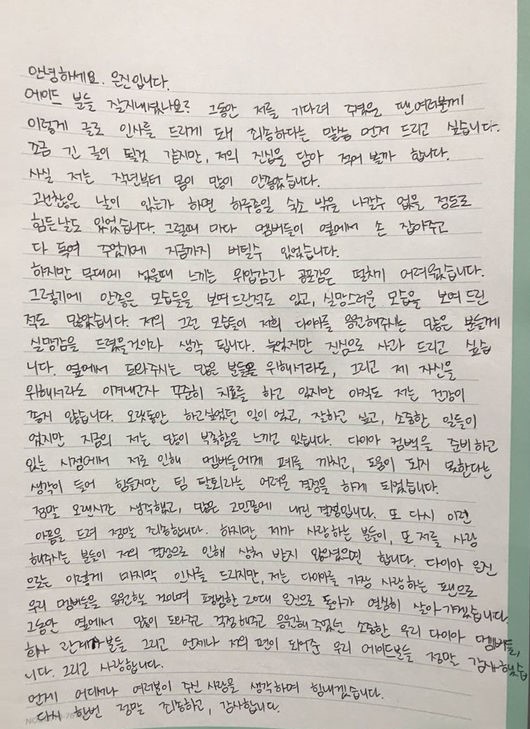 안녕하세요. 은진입니다.
에이드 분들 잘지내셨나요? 그동안 저를 기다려 주셨을 팬여러분께
이렇게 글로 인사를 드리게 돼 죄송하다는 말씀 먼저 드리고 싶습니다.
조금 긴 글이 될것 같지만, 저의 진심을 담아 적어 볼까 합니다.
사실 저는 작년부터 몸이 많이 안좋았습니다.
괜찮은 날이 있는가 하면 하루종일 숙소 밖을 나갈수 없을 정도로
힘든날도 있었습니다. 그럴때 마다 멤버들이 옆에서 손 잡아주고
다 독여 주었기에 지금까지 버틸수 있었습니다.
하지만 무대에 섰을때 느끼는 위압감과 공포감은 떨치기 어려웠습니다.
그렇기에 안좋은 모습들을 보여드린적도 있고, 실망스러운 모습을 보여드린
적도 많았습니다. 저의 그런 모습들이 저희 다이아를 응원해주시는 많은 분들께
실망감을 드렸을것이라 생각 됩니다. 늦었지만 진심으로 사과 드리고 싶습
니다. 옆에서 도와주시는 많은 분들을 위해서라도, 그리고 제 자신을
위해서라도 이겨내고자 꾸준히 치료를 하고 있지만 아직도 저는 건강이
좋지 않습니다. 오랫동안 하고싶었던 일이 었고, 잘하고 싶고, 소중한 일들이
었지만 지금의 저는 많이 부족함을 느끼고 있습니다. 다이아 컴백을 준비하고
있는 시점에서 저로 인해 멤버들에게 폐를 끼치고, 도움이 되지 못한다는
생각이 들어 힘들지만 팀 탈퇴라는 어려운 결정을 하게 되었습니다.
정말 오랜시간 생각했고, 많은 고민끝에 내린 결정입니다. 또 다시 이런
아픔을 드려 정말 죄송합니다. 하지만 제가 사랑하는 분들이, 또 저를 사랑
해주시는 분들이 저의 결정으로 인해 상처 받지 않았으면 합니다. 다이아 은진
으로는 이렇게 마지막 인사를 드리지만, 저는 다이아를 가장 사랑하는 팬으로
우리 멤버들을 응원할 것이며 평범한 20대 은진으로 돌아가 열심히 살아가겠습니다.
그동안 옆에서 많이 도와주고 걱정해주고 응원해 주었던 소중한 우리 다이아 멤버들,
회사 관계자분들 그리고 언제나 저의 편이 되어준 우리 에이드분들 정말 감사했습
니다. 그리고 사랑합니다.
언제 어디서나 여러분이 주신 사랑을 생각하며 힘내겠습니다.
다시 한번 정말 죄송하고, 감사합니다.